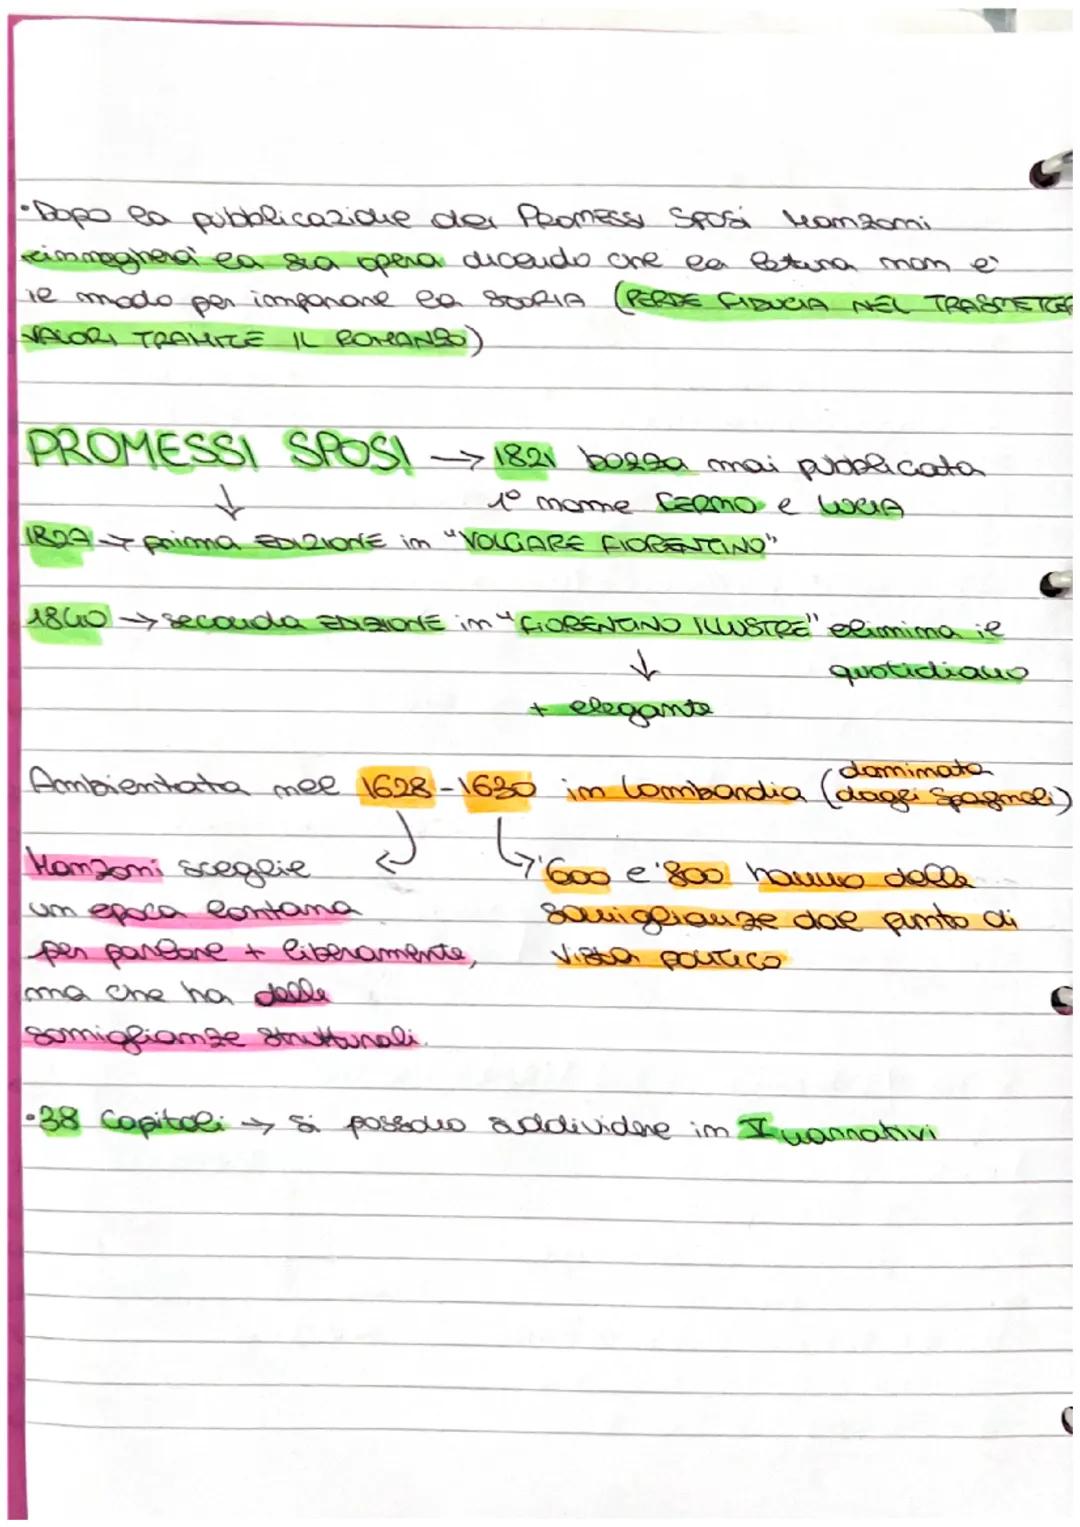 •Dopo la pubblicazione dei Promessi Sposi Manzoni
rinnegherà la sua opera dicendo che la lettura non è
il modo per imparare la STORIA (PERDE FIDUCIA NEL TRASMETTER
VALORI TRAMITE IL ROMANZO)
PROMESSI SPOSI → 1821 bozza mai pubblicata
↓ 1° nome FERMO e LUCIA
1827 → prima EDIZIONE in "VOLGARE FIORENTINO"
1840 → seconda EDIZIONE in "FIORENTINO ILLUSTRE" elimina il
↓ quotidiano
+ elegante
Ambientata nel 1628-1630 in Lombardia (dominata
dagli Spagnoli)
Manzoni sceglie
un epoca lontana
per parlare + liberamente,
ma che ha delle
somiglianze strutturali.
'600 e '800 hanno delle
somiglianze dal punto di
vista politico
•38 Capitoli → si possono suddividere in I narrativi